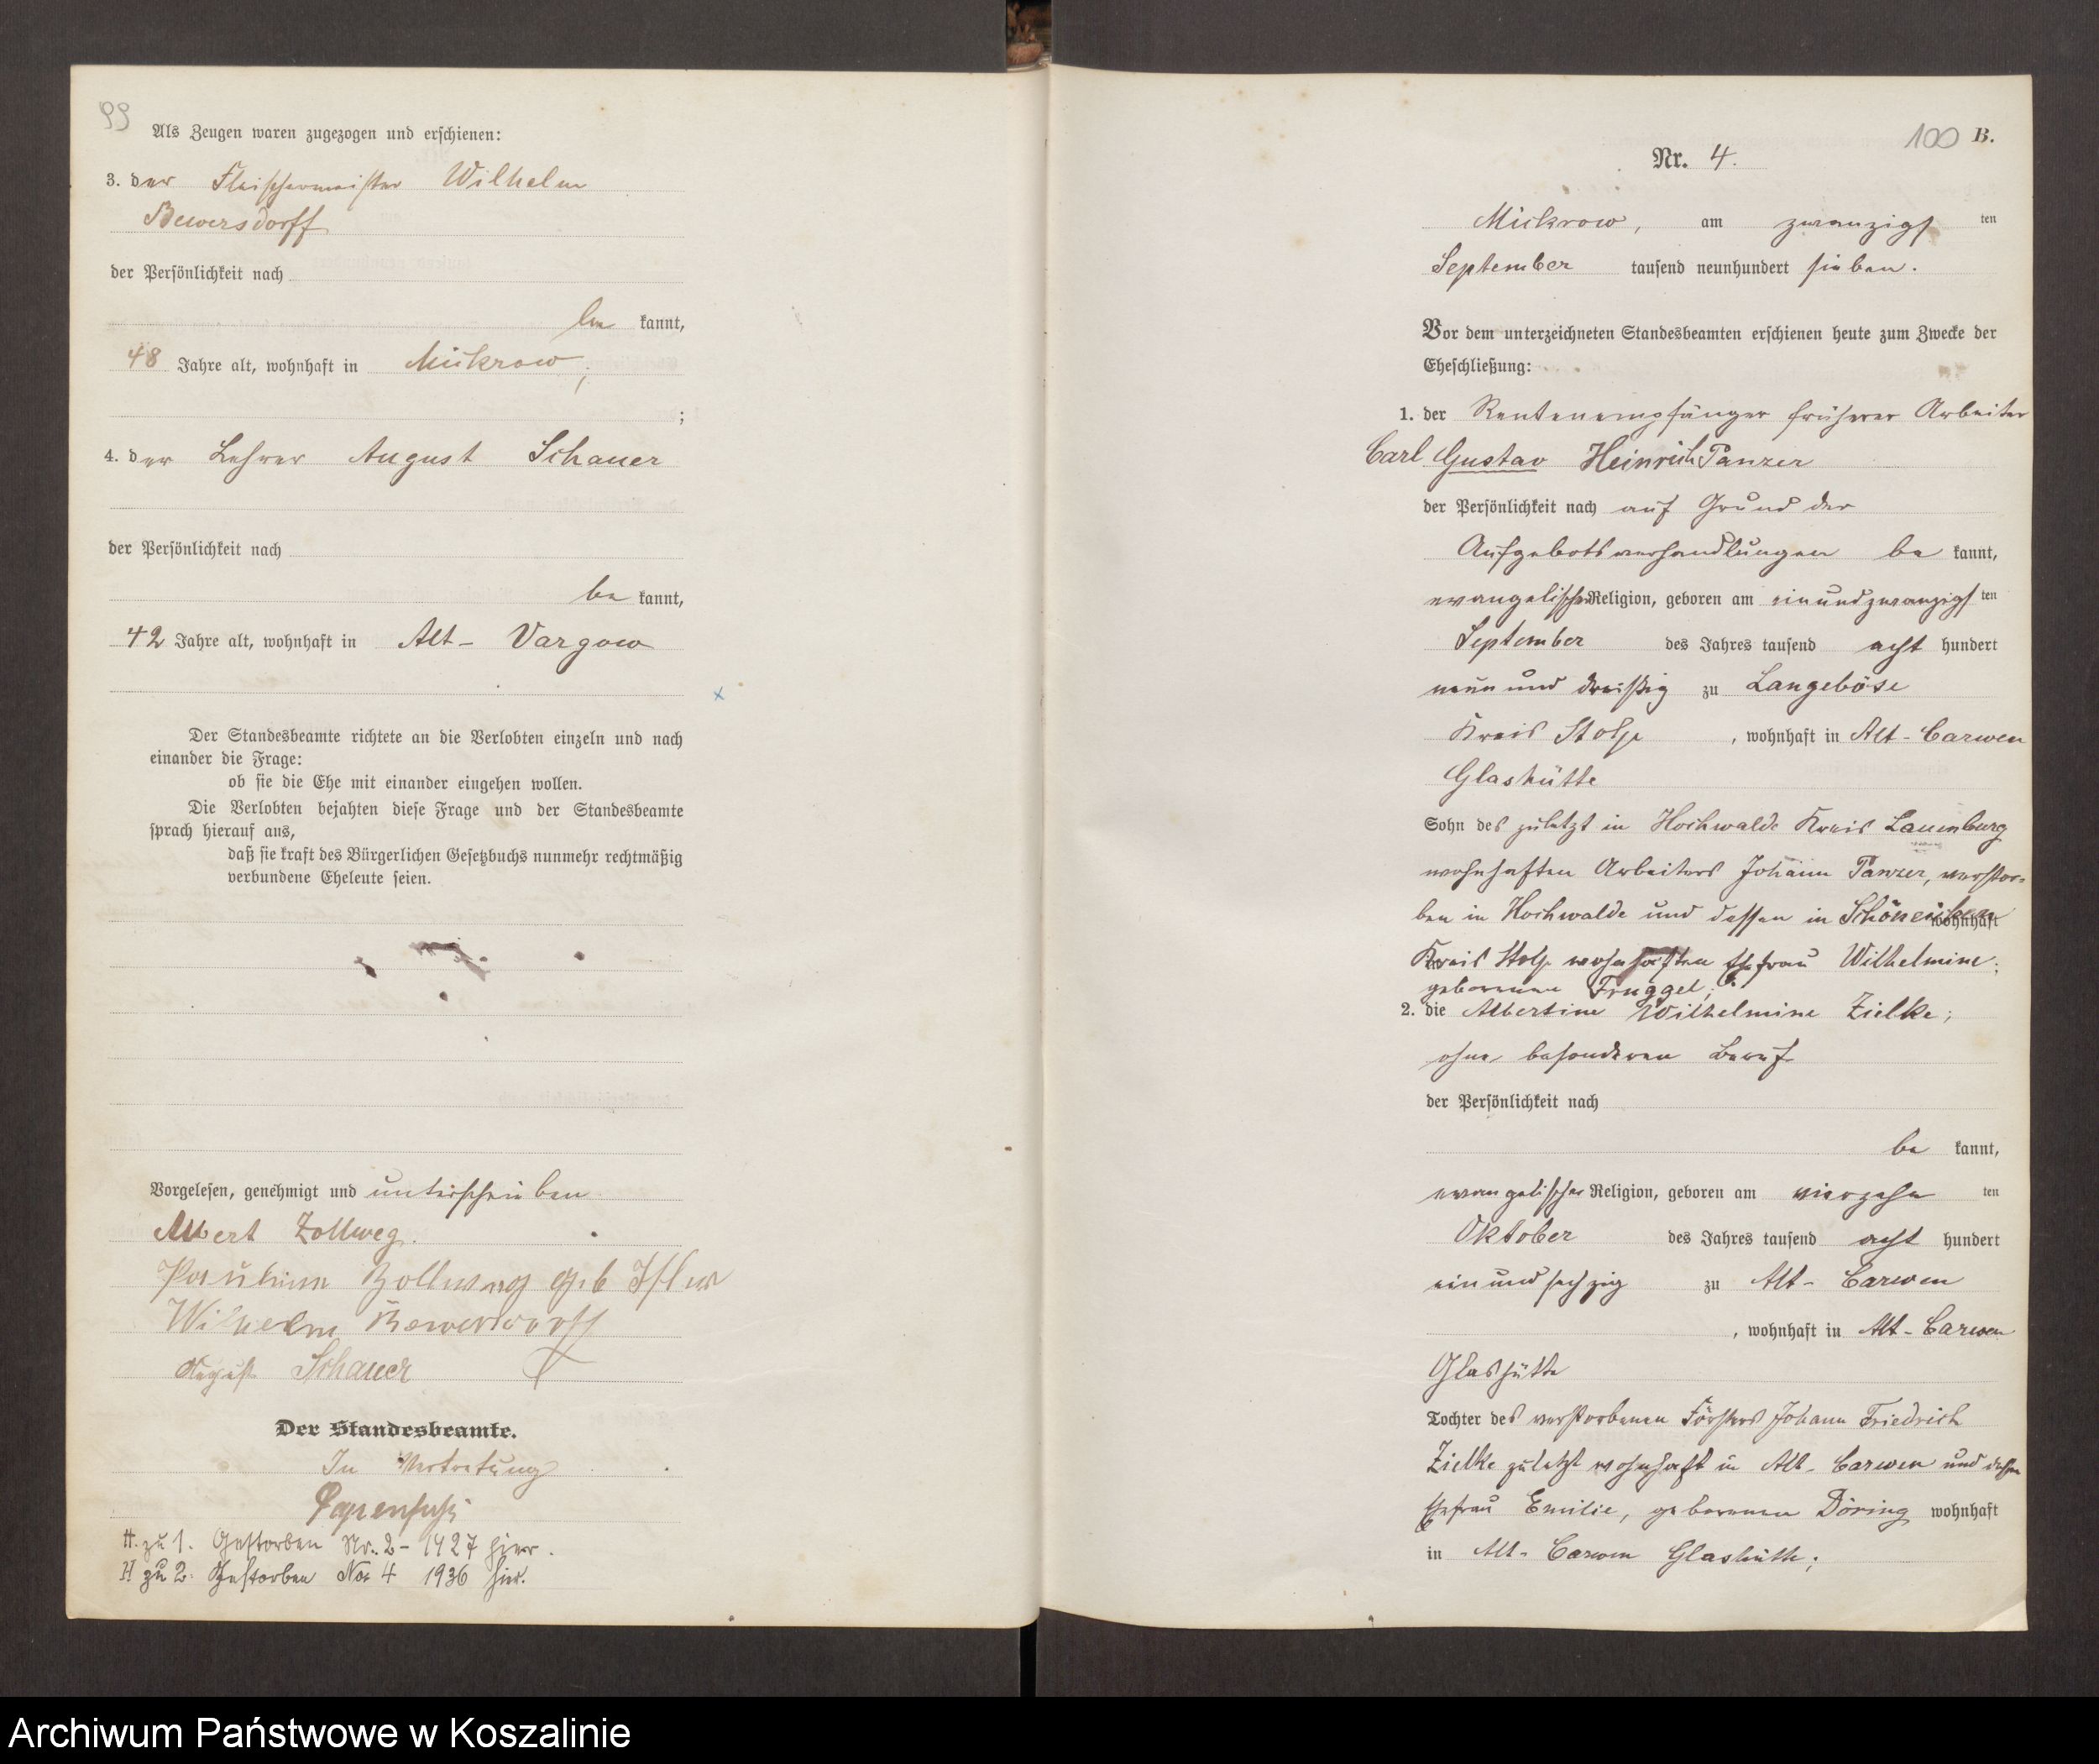 99
Als Zeugen waren zugezogen und erschienen:
3. der Fleischermeister Wilhelm
Bewersdorff
der Persönlichkeit nach
be kannt,
48 Jahre alt, wohnhaft in Mickrow,
;
4. der Lehrer August Schauer
der Persönlichkeit nach
be kannt,
42 Jahre alt, wohnhaft in Alt-Vargow
Der Standesbeamte richtete an die Verlobten einzeln und nach
einander die Frage:
ob sie die Ehe mit einander eingehen wollen.
Die Verlobten bejahten diese Frage und der Standesbeamte
sprach hierauf aus,
daß sie kraft des Bürgerlichen Gesetzbuchs nunmehr rechtmäßig
verbundene Eheleute seien.
Vorgelesen, genehmigt und unterschrieben
Albert Zollweg.
Zollweg geb
Wilhelm Bewersdorff
August Schauer
Der Standesbeamte.
In Vertretung
Papenfuß
H. zu 1. Gestorben Nr. 2 - 1927 hier.
H zu 2. Gestorben No 4 1936 hier.
100 B.
Nr. 4.
Mickrow, am zwanzigs ten
September tausend neunhundert sieben.
Vor dem unterzeichneten Standesbeamten erschienen heute zum Zwecke der
Eheschließung:
1. der Rentenempfänger früherer Arbeiter
Carl Gustav Heinrich Panzer
der Persönlichkeit nach auf Grund der
Aufgebotsverhandlungen be kannt,
evangelischer Religion, geboren am einundzwanzigs ten
September des Jahres tausend acht hundert
neun und dreißig zu Langeböse
Kreis Stolp, wohnhaft in Alt-Carwen
Glashütte
Sohn des zuletzt in Hochwalde Kreis Lauenburg
wohnhaften Arbeiters Johann Panzer, verstor-
ben in Hochwalde und dessen in Schöneichen wohnhaft
Kreis Stolp wohnhaften Ehefrau Wilhelmine
geborenen Truggel;
2. die Albertine Wilhelmine Zielke,
ohne besonderen Beruf
der Persönlichkeit nach
be kannt,
evangelischer Religion, geboren am vierzehn ten
Oktober des Jahres tausend acht hundert
einundsechzig zu Alt-Carwen
, wohnhaft in Alt-Carwen
Glashütte
Tochter des verstorbenen Försters Johann Friedrich
Zielke zuletzt wohnhaft in Alt-Carwen und dessen
Ehefrau Emilie, geborenen Döring wohnhaft
in Alt-Carwen Glashütte;
Archiwum Państwowe w Koszalinie